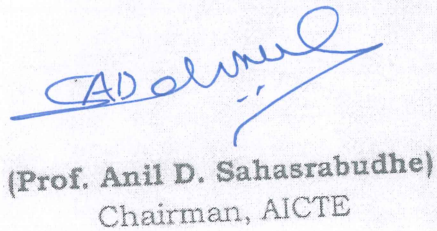 (Prof. Anil D. Sahasrabudhe)
Chairman, AICTE